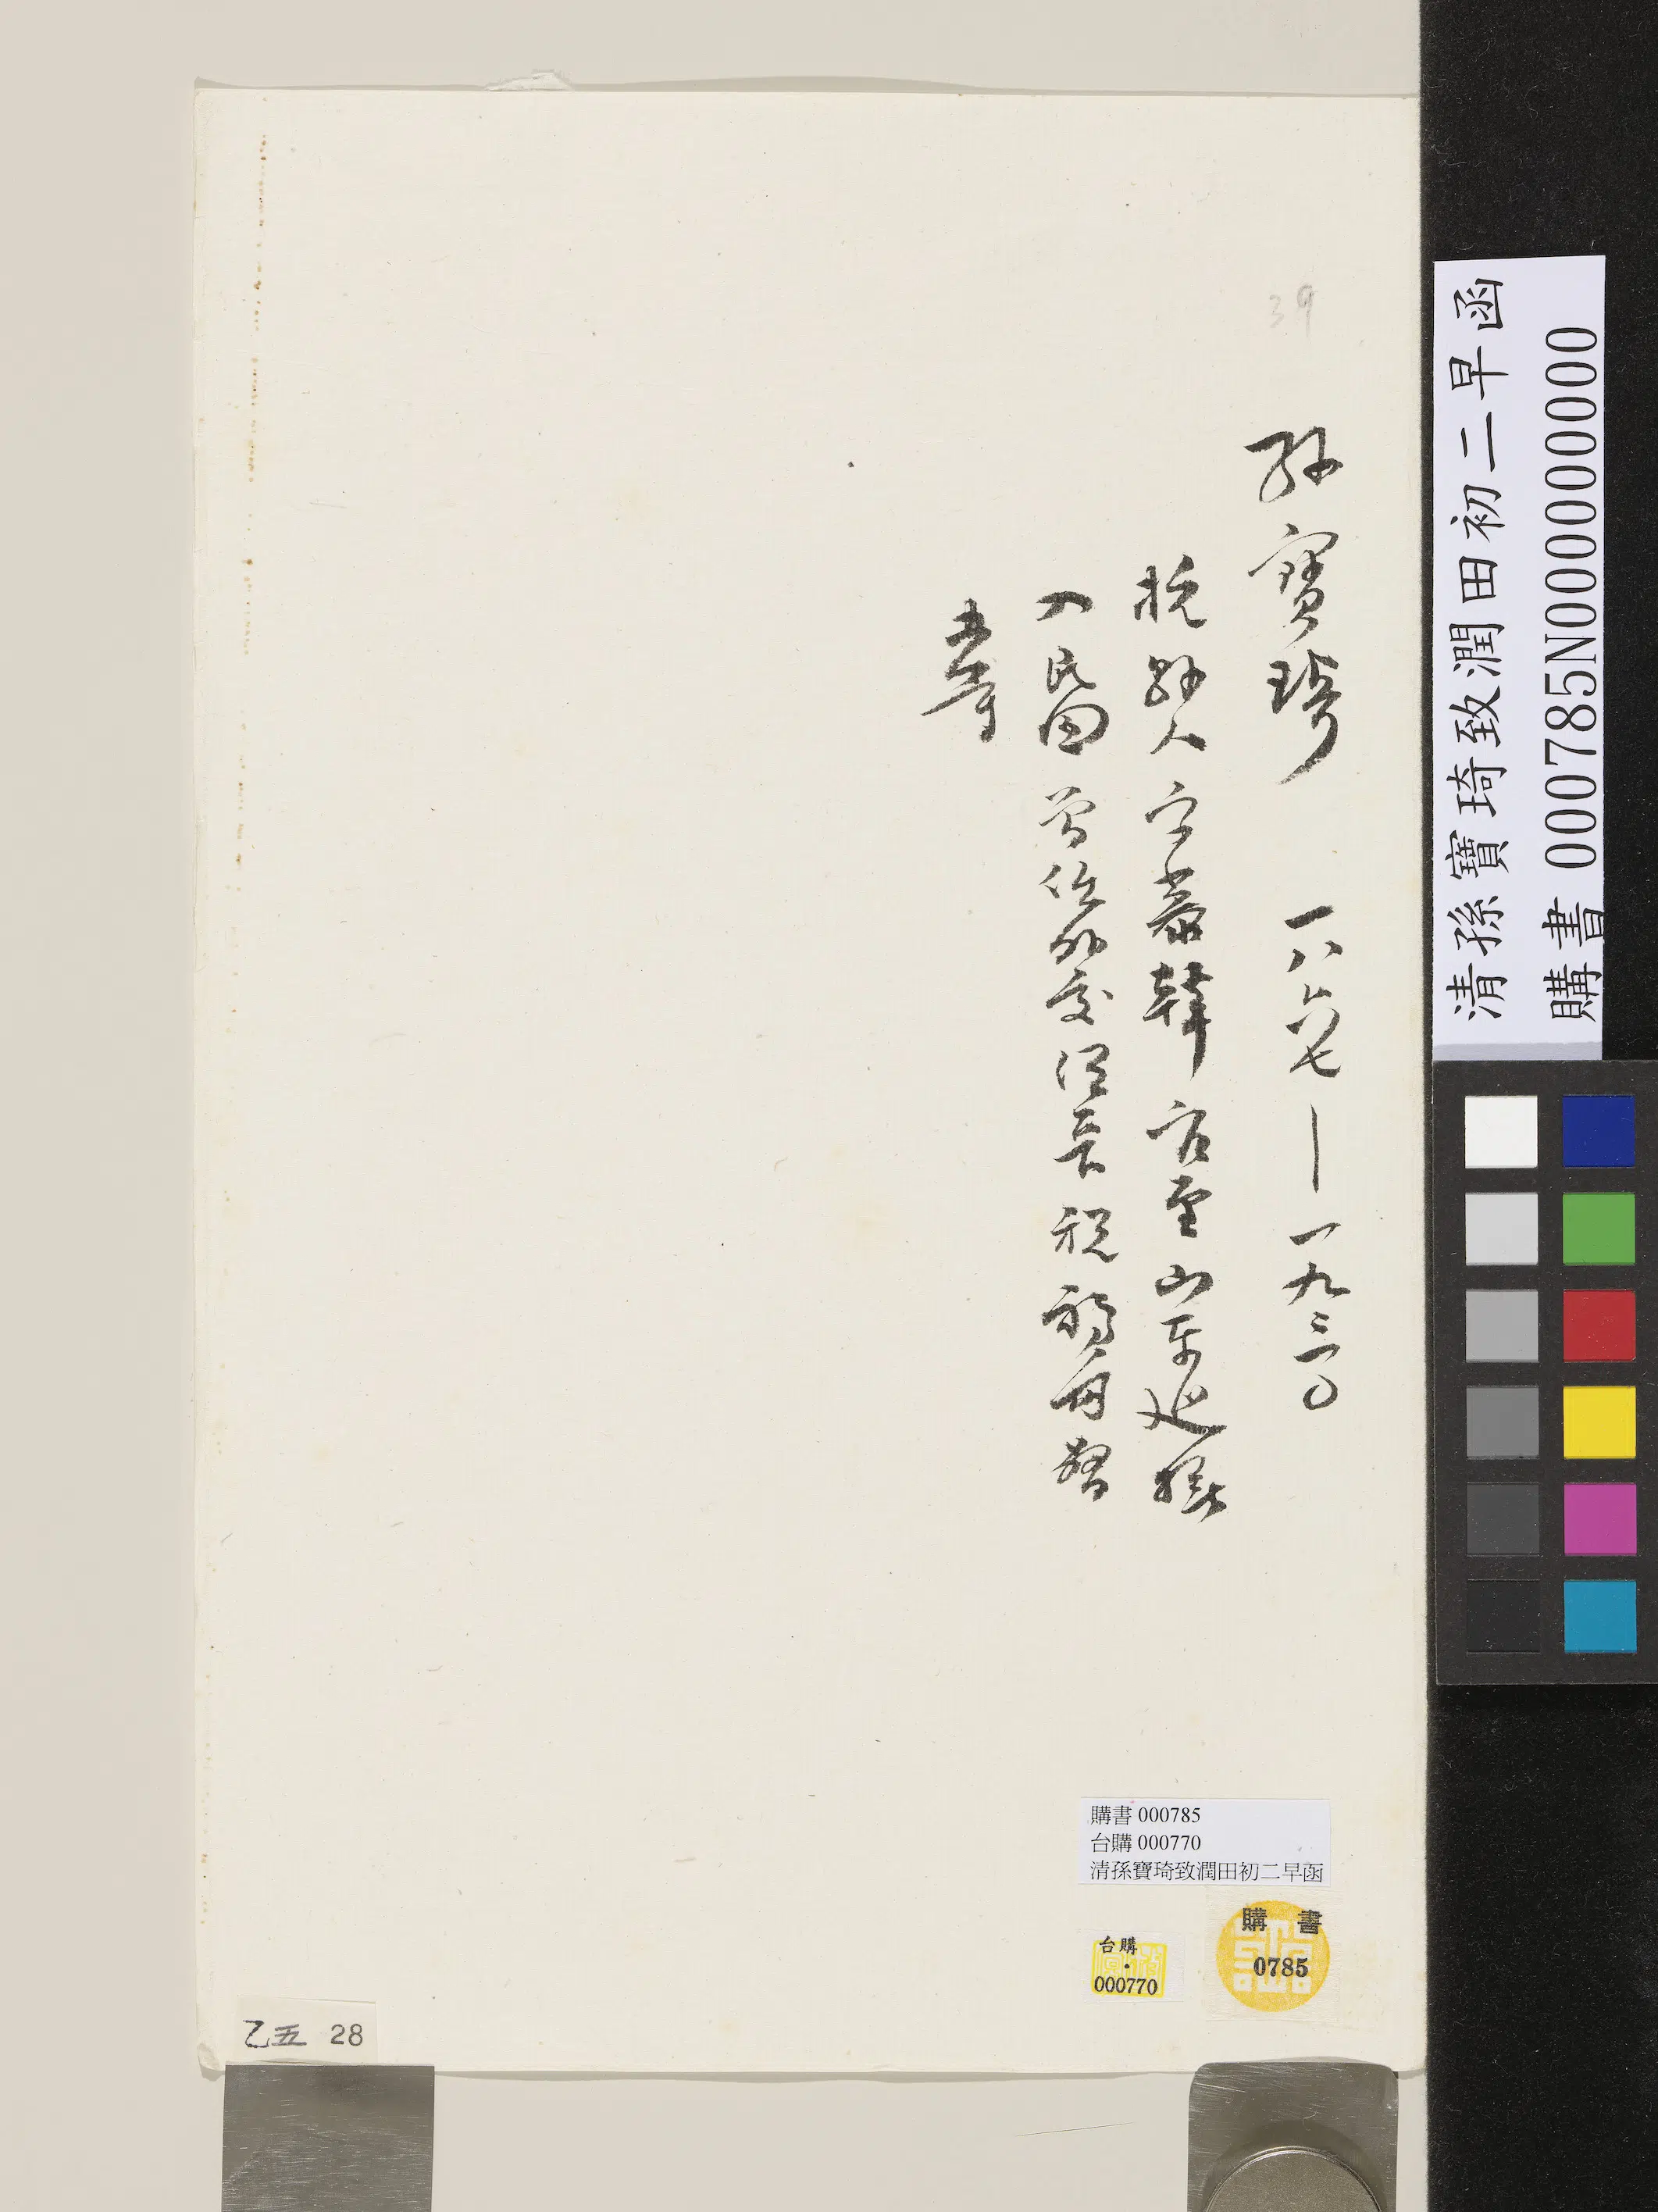 39
孫寶琦 一八六七—一九三〇
杭縣人 字慕韓 官至山東巡撫
入民國 曾任外交總長 稅務督
辦等
購書 000785
台購 000770
清孫寶琦致潤田初二早函
購書
0785
台購
000770
乙五 28
清孫寶琦致潤田初二早函
購書 000785N000000000